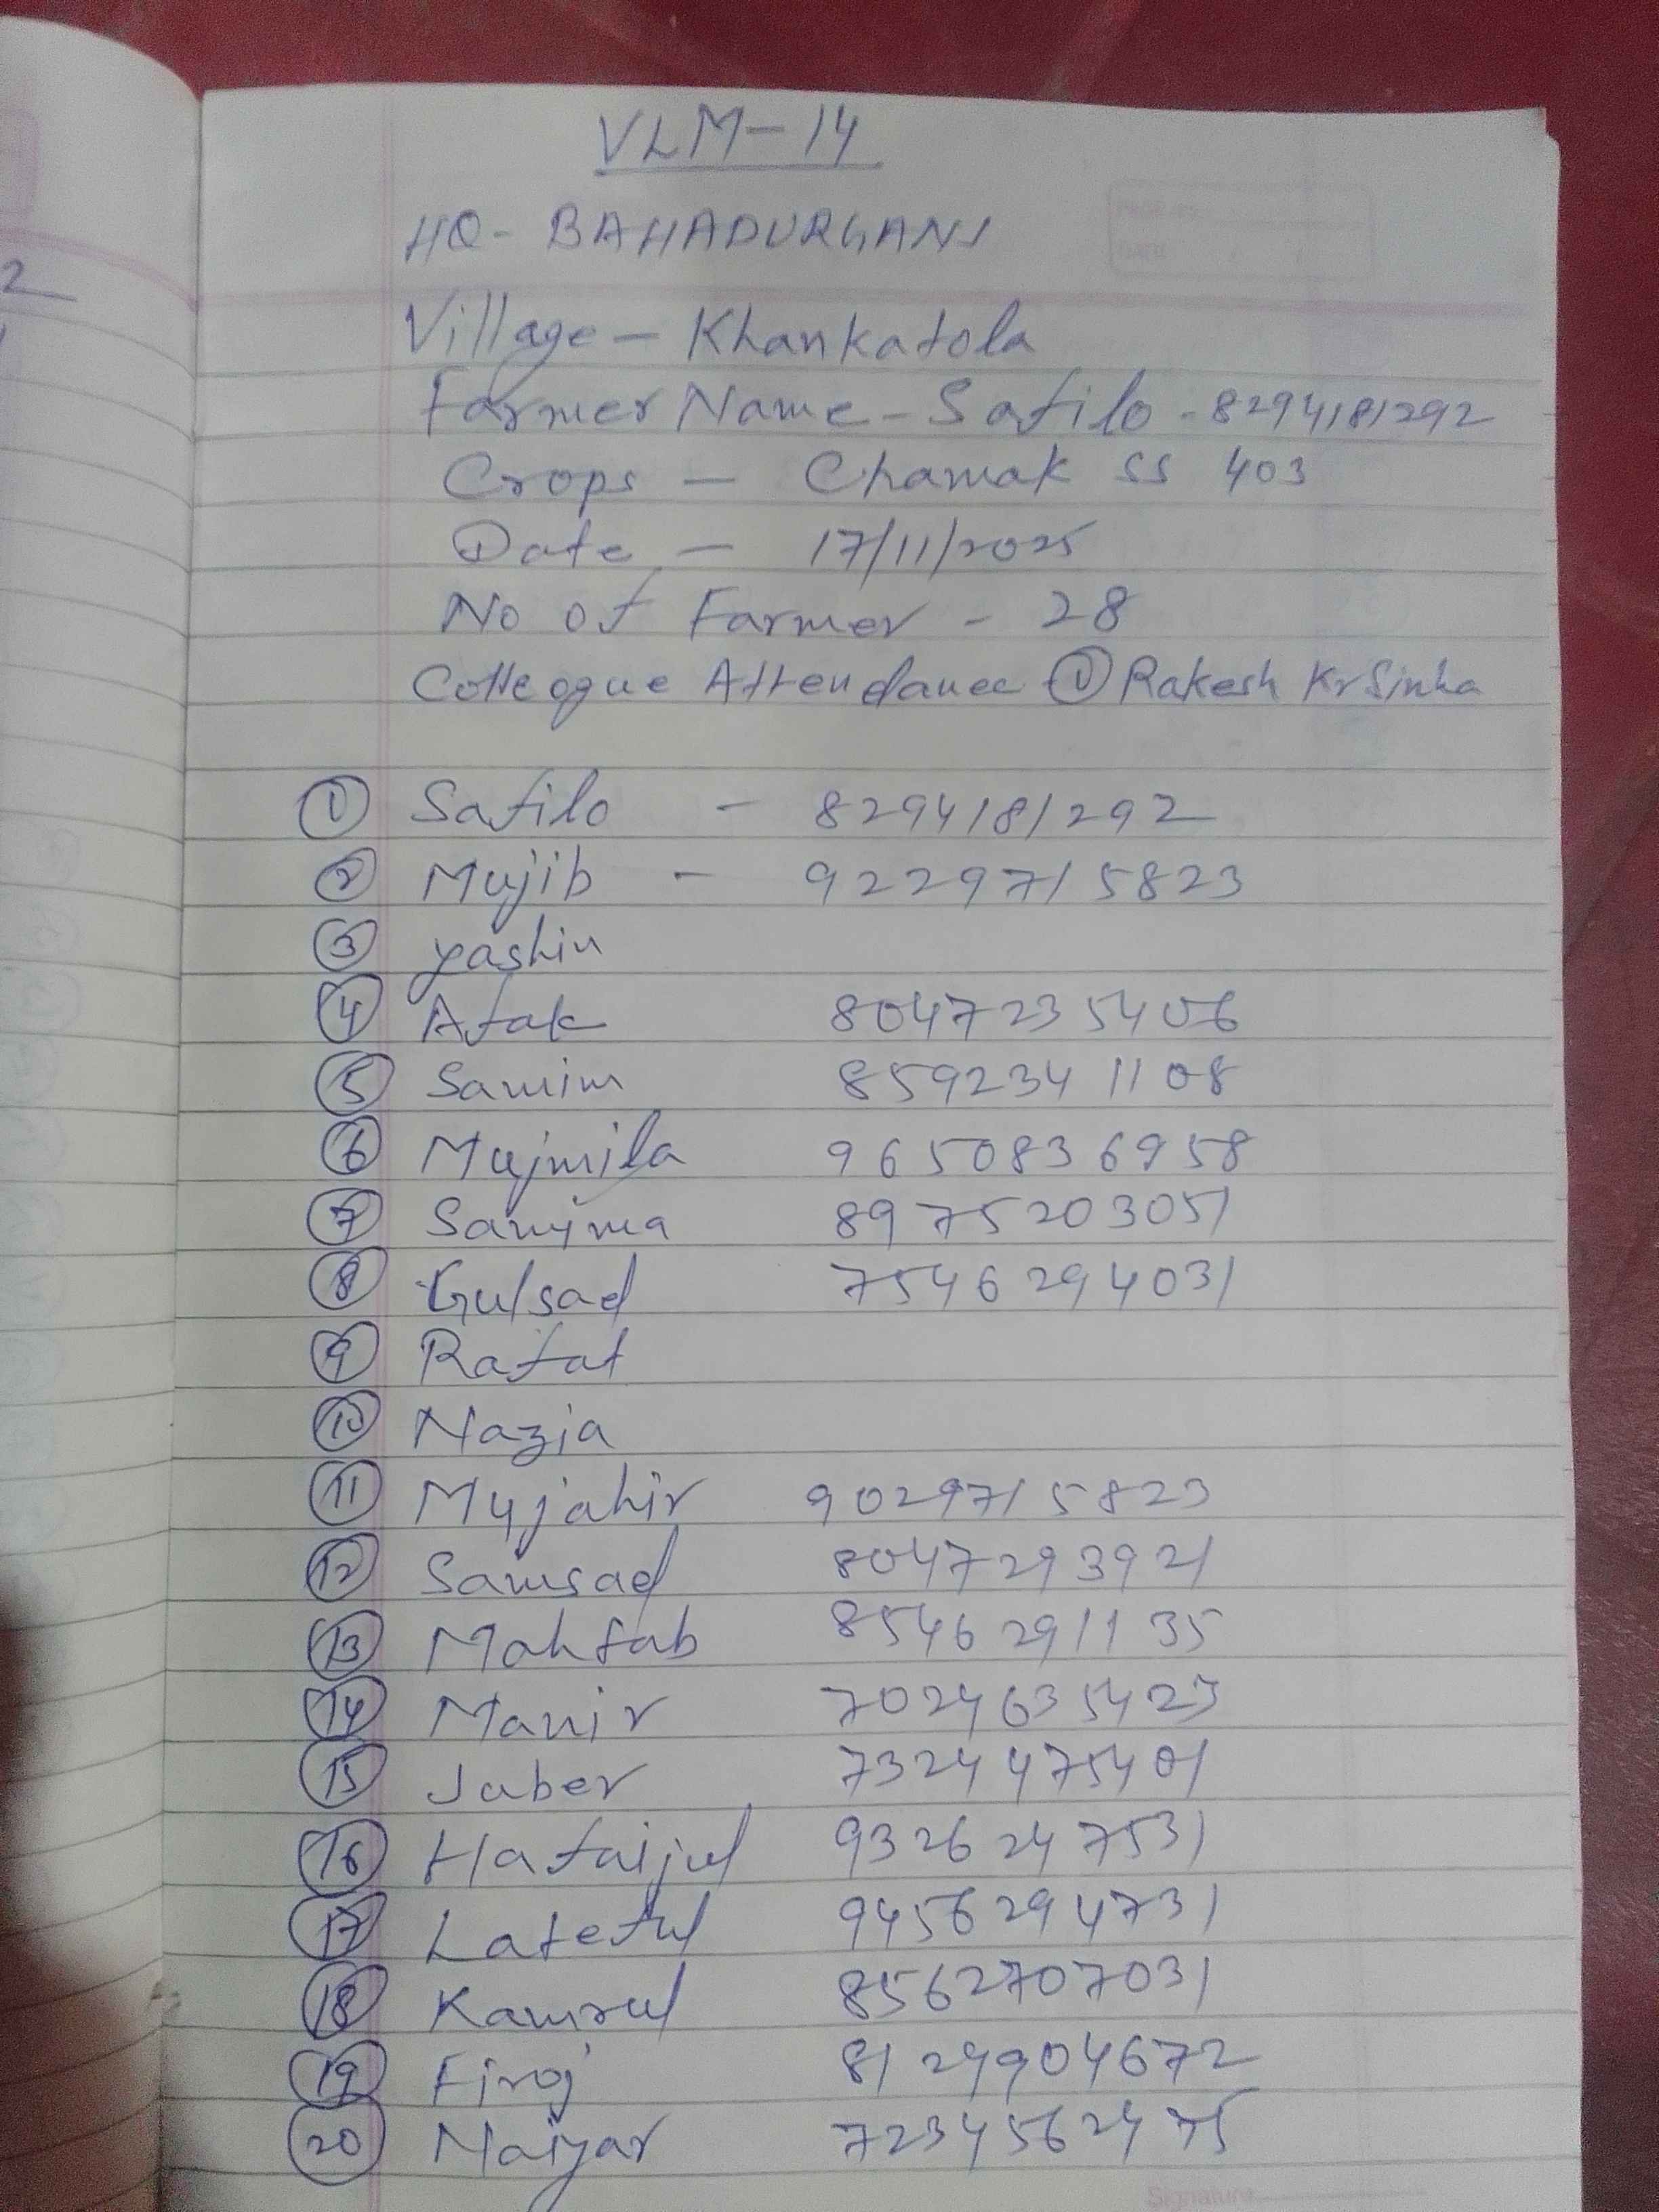 VLM-14
HQ- BAHADURGANJ
Village - Khankatola
Farmer Name - Safilo - 8294181292
Crops - Chamak SS 403
Date - 17/11/2025
No of Farmer - 28
Colleogue Attendance ① Rakesh Kr Sinha
① Safilo - 8294181292
② Mujib - 9229715823
③ yashin
④ Afak 8047235406
⑤ Samim 8592341108
⑥ Mujmila 9650836958
⑦ Sanjma 8975203051
⑧ Gulsad 7546294031
⑨ Rafat
⑩ Nazia
⑪ Mujahir 9029715823
⑫ Samsad 8047293921
⑬ Mahfab 8546291135
⑭ Manir 7024635423
⑮ Jaber 7324475401
⑯ Hafaijul 9326247531
⑰ Lateful 9456294731
⑱ Kamrul 8562707031
⑲ Firoj 8124904672
⑳ Naiyar 7234562475
Signature
2